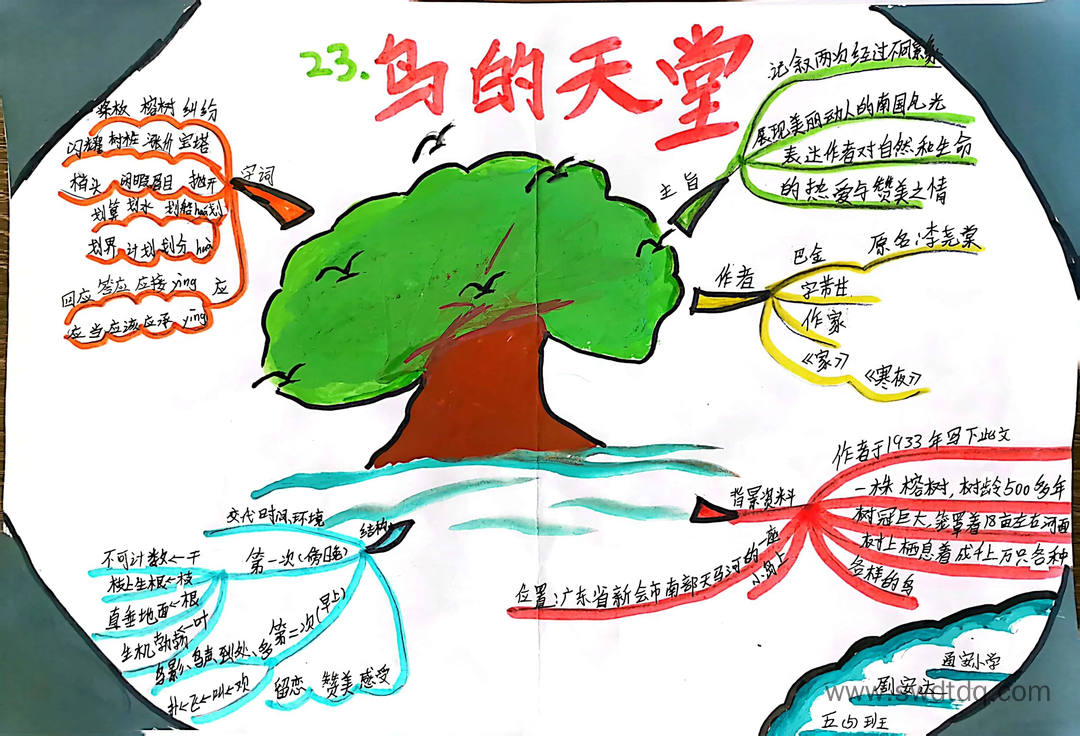 23.鸟的天堂
字词
桨板 榕树 纠纷
闪耀 树桩 涨价 宝塔
梢头 闭眼眉目 抛开
划算 划水 划船 huá 划
划界 计划 划分 huà
回应 答应 应接 yìng 应
应当 应该 应承 yīng
主旨
记叙两次经过不同景象
展现美丽动人的南国风光
表达作者对自然和生命
的热爱与赞美之情
作者
巴金
原名:李尧棠
字芾甘
作家
《家》
《寒夜》
背景资料
作者于1933年写下此文
一株榕树,树龄500多年
树冠巨大,笼罩着18亩左右河面
树上栖息着成千上万只各种
各样的鸟
位置:广东省新会市南部天马河的一座
小岛上
结构
交代时间、环境
第一次(傍晚)
不可计数←干
枝上生根←枝
直垂地面←根
生机勃勃←叶
第二次(早上)
鸟影、鸟声到处、多
扑←飞←叫←欢
留恋、赞美 感受
五
班
www.swdtdq.com